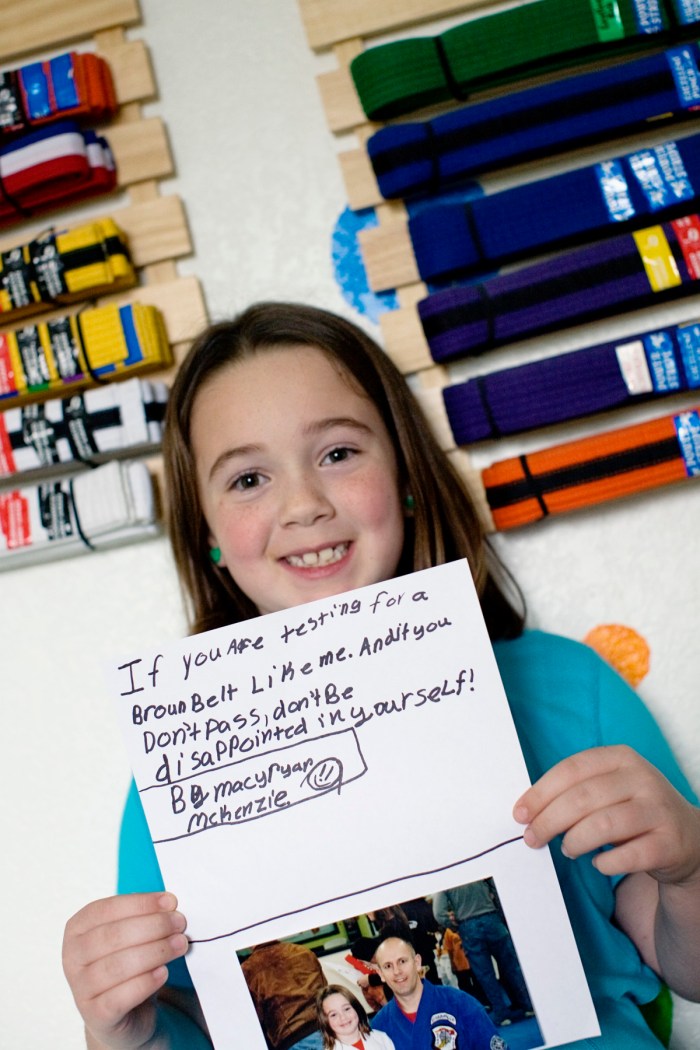 If you Are testing for a
Broun Belt Like me. And it you
Don't Pass, don't Be
disappointed in yourself!
By macy ryan
mckenzie.